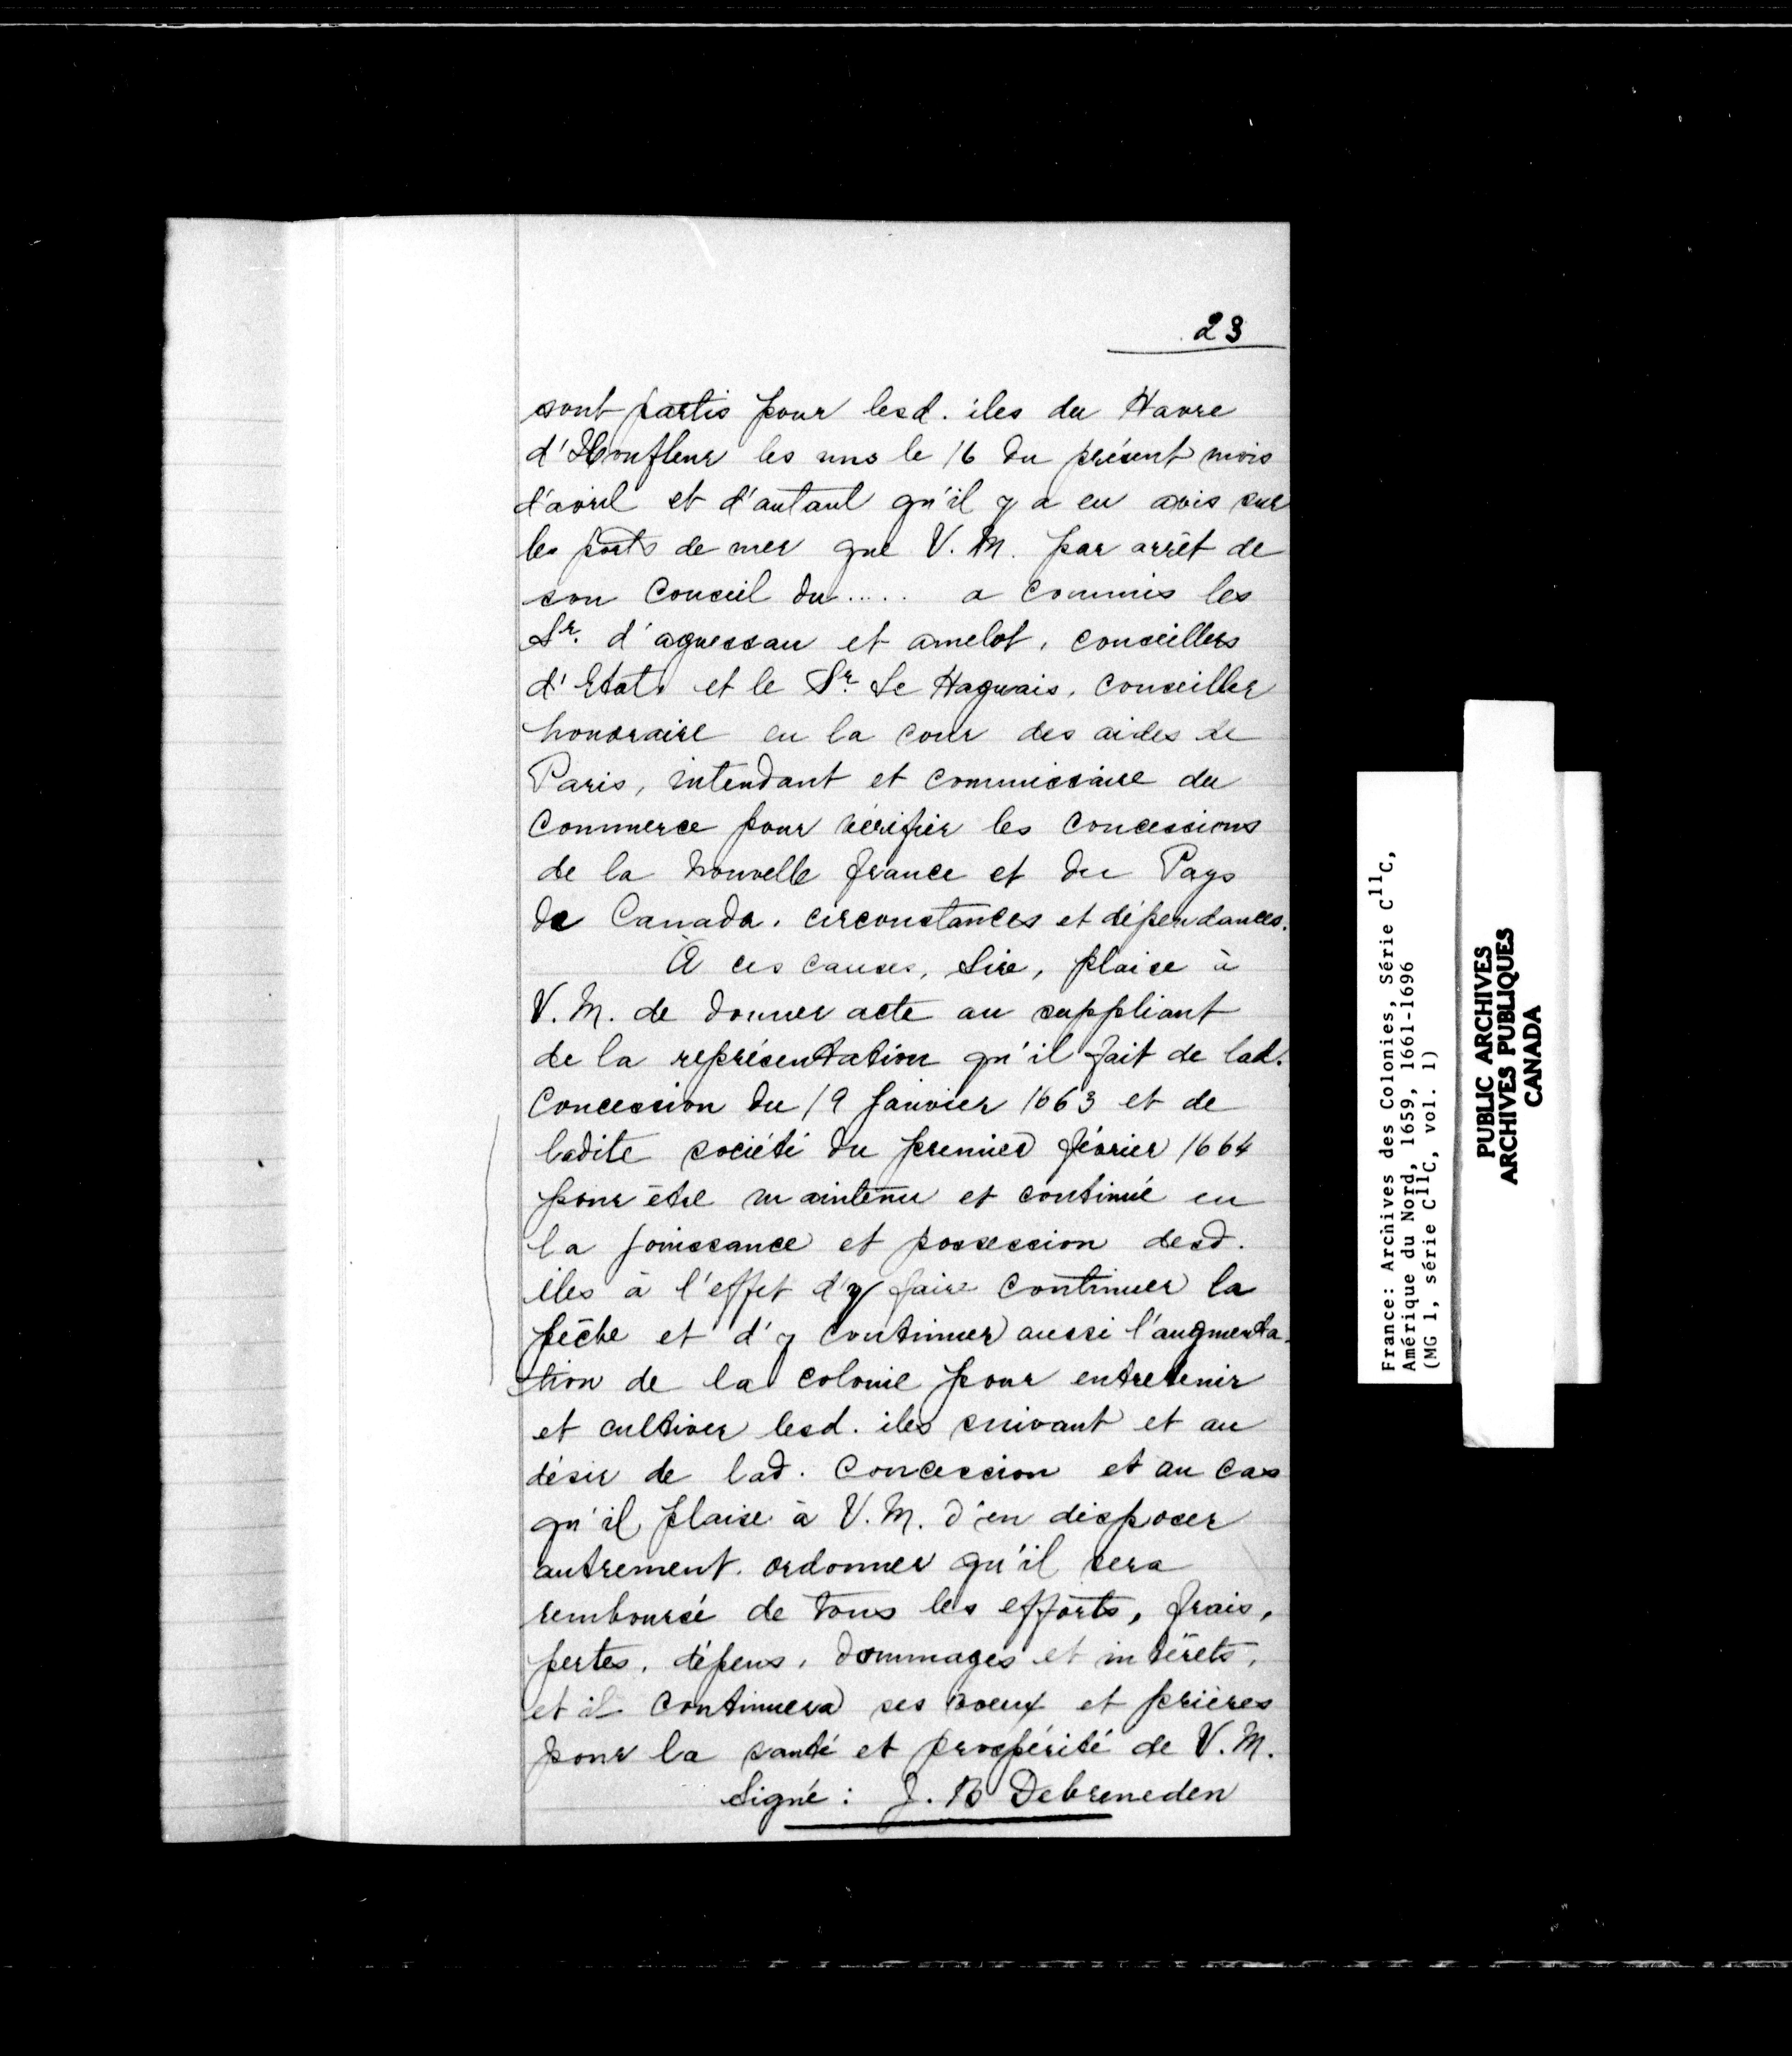 23
sont partis pour lesd. iles du Havre
d'Honfleur les uns le 16 du présent mois
d'avril et d'autant qu'il y a eu avis sur
les ports de mer que V. M. par arrêt de
son Conseil du ..... a commis les
Sr. d'aguessau et amelot, conseillers
d'Etat, et le Sr. Le Haguais, conseiller
honoraire en la cour des aides de
Paris, intendant et commissaire du
Commerce pour vérifier les concessions
de la nouvelle france et du Pays
de Canada, circonstances et dépendances.
À ces causes, Sire, plaise à
V. M. de donner acte au suppliant
de la représentation qu'il fait de lad.
Concession du 19 Janvier 1663 et de
ladite société du premier février 1664
pour être maintenu et continué en
la jouissance et possession desd.
iles à l'effet d'y faire continuer la
pêche et d'y continuer aussi l'augmenta-
tion de la colonie pour entretenir
et cultiver lesd. iles suivant et au
désir de lad. Concession et au cas
qu'il plaise à V. M. d'en disposer
autrement, ordonner qu'il sera
remboursé de tous les efforts, frais,
pertes, dépens, dommages et intérêts,
et il continuera ses voeux et prières
pour la santé et prospérité de V. M.
Signé : J. B Debreneden
France: Archives des Colonies, Série C11C,
Amérique du Nord, 1659, 1661-1696
(MG 1, série C11C, vol. 1)
PUBLIC ARCHIVES
ARCHIVES PUBLIQUES
CANADA